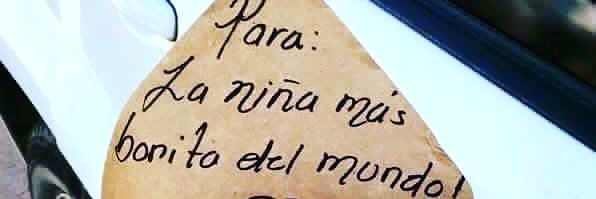 Para:
La niña más
bonita del mundo!